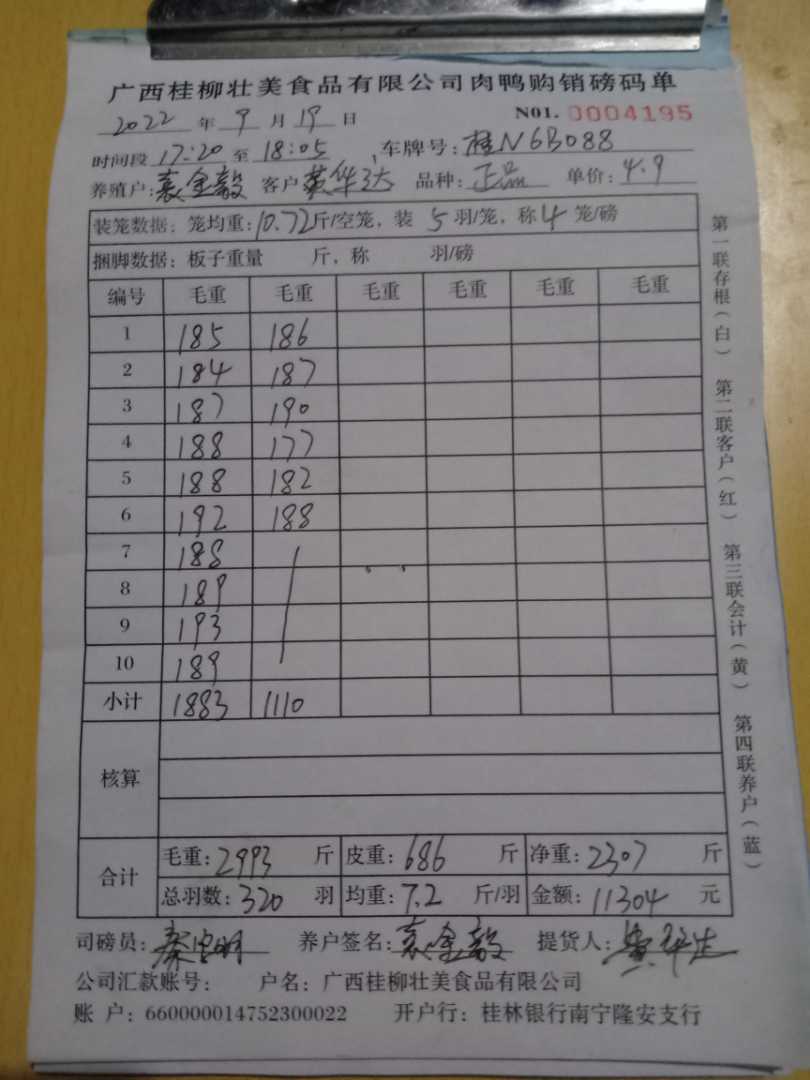 广西桂柳壮美食品有限公司肉鸭购销磅码单
2022 年 9 月 19 日 N01. 0004195
时间段 17:20 至 18:05 车牌号: 桂N6B088
养殖户: 袁金毅 客户 黄华达 品种: 正品 单价: 4.9
装笼数据: 笼均重: 10.72 斤/空笼, 装 5 羽/笼, 称 4 笼/磅
捆脚数据: 板子重量 斤, 称 羽/磅
编号 毛重 毛重 毛重 毛重 毛重 毛重
1 185 186
2 184 187
3 187 190
4 188 177
5 188 182
6 192 188
7 188
8 189
9 193
10 189
小计 1883 1110
核算
合计 毛重: 2993 斤 皮重: 686 斤 净重: 2307 斤
总羽数: 320 羽 均重: 7.2 斤/羽 金额: 11304 元
司磅员: 养户签名: 袁金毅 提货人: 黄华达
公司汇款账号: 户名: 广西桂柳壮美食品有限公司
账 户: 660000014752300022 开户行: 桂林银行南宁隆安支行
第一联存根(白) 第二联客户(红) 第三联会计(黄) 第四联养户(蓝)